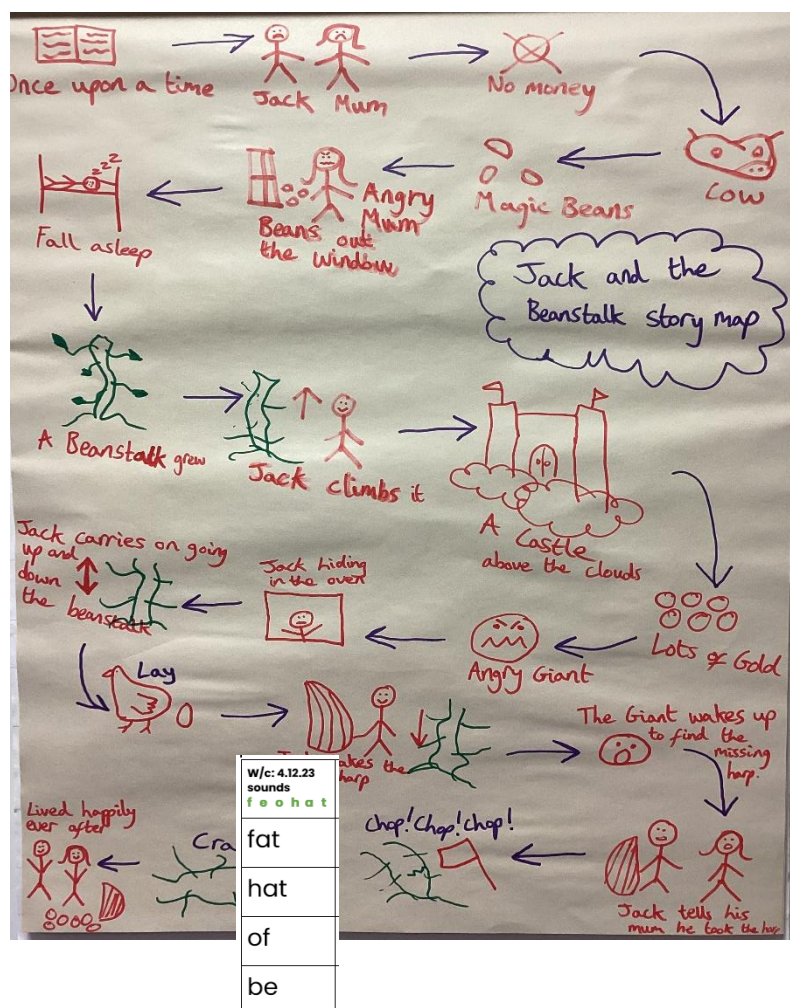 Once upon a time
Jack Mum
No money
Cow
Magic Beans
Angry
Mum
Beans out
the window
zzz
Fall asleep
Jack and the
Beanstalk story map
A Beanstalk grew
Jack climbs it
A Castle
above the clouds
Lots of Gold
Angry Giant
Jack hiding
in the oven
Jack carries on going
up and
down
the beanstalk
Lay
takes the
harp
The Giant wakes up
to find the
missing
harp.
Jack tells his
mum he took the harp
Chop! Chop! Chop!
Cra
Lived happily
ever after
W/c: 4.12.23
sounds
f e o h a t
fat
hat
of
be